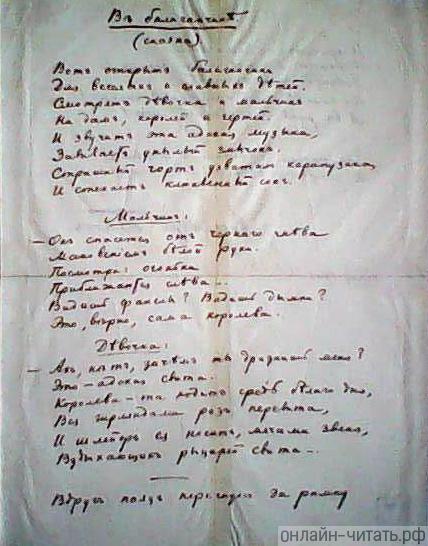 Въ балаганчикѣ
(сказка)
Вотъ открытъ балаганчикъ
Для веселыхъ и славныхъ дѣтей.
Смотрятъ дѣвочка и мальчикъ
На дамъ, королей и чертей.
И звучитъ эта адская музыка,
Завываетъ унылый смычокъ.
Страшный чортъ ухватилъ карапузика,
И стекаетъ клюквенный сокъ.
Мальчикъ:
— Онъ спасется отъ чернаго гнѣва
Мановеньемъ бѣлой руки.
Посмотри: огоньки
Приближаются слѣва...
Видишь факелы? Видишь дымки?
Это, вѣрно, сама королева.
Дѣвочка:
— Ахъ, нѣтъ, зачѣмъ ты дразнишь меня?
Это – адская свита...
Королева – та ходитъ средь бѣлаго дня,
Вся гирляндами розъ перевита,
И шлейфъ ея носитъ, мечами звеня,
Вздыхающихъ рыцарей свита...
Вдругъ паяцъ перегнулся за рампу
онлайн-читать.рф